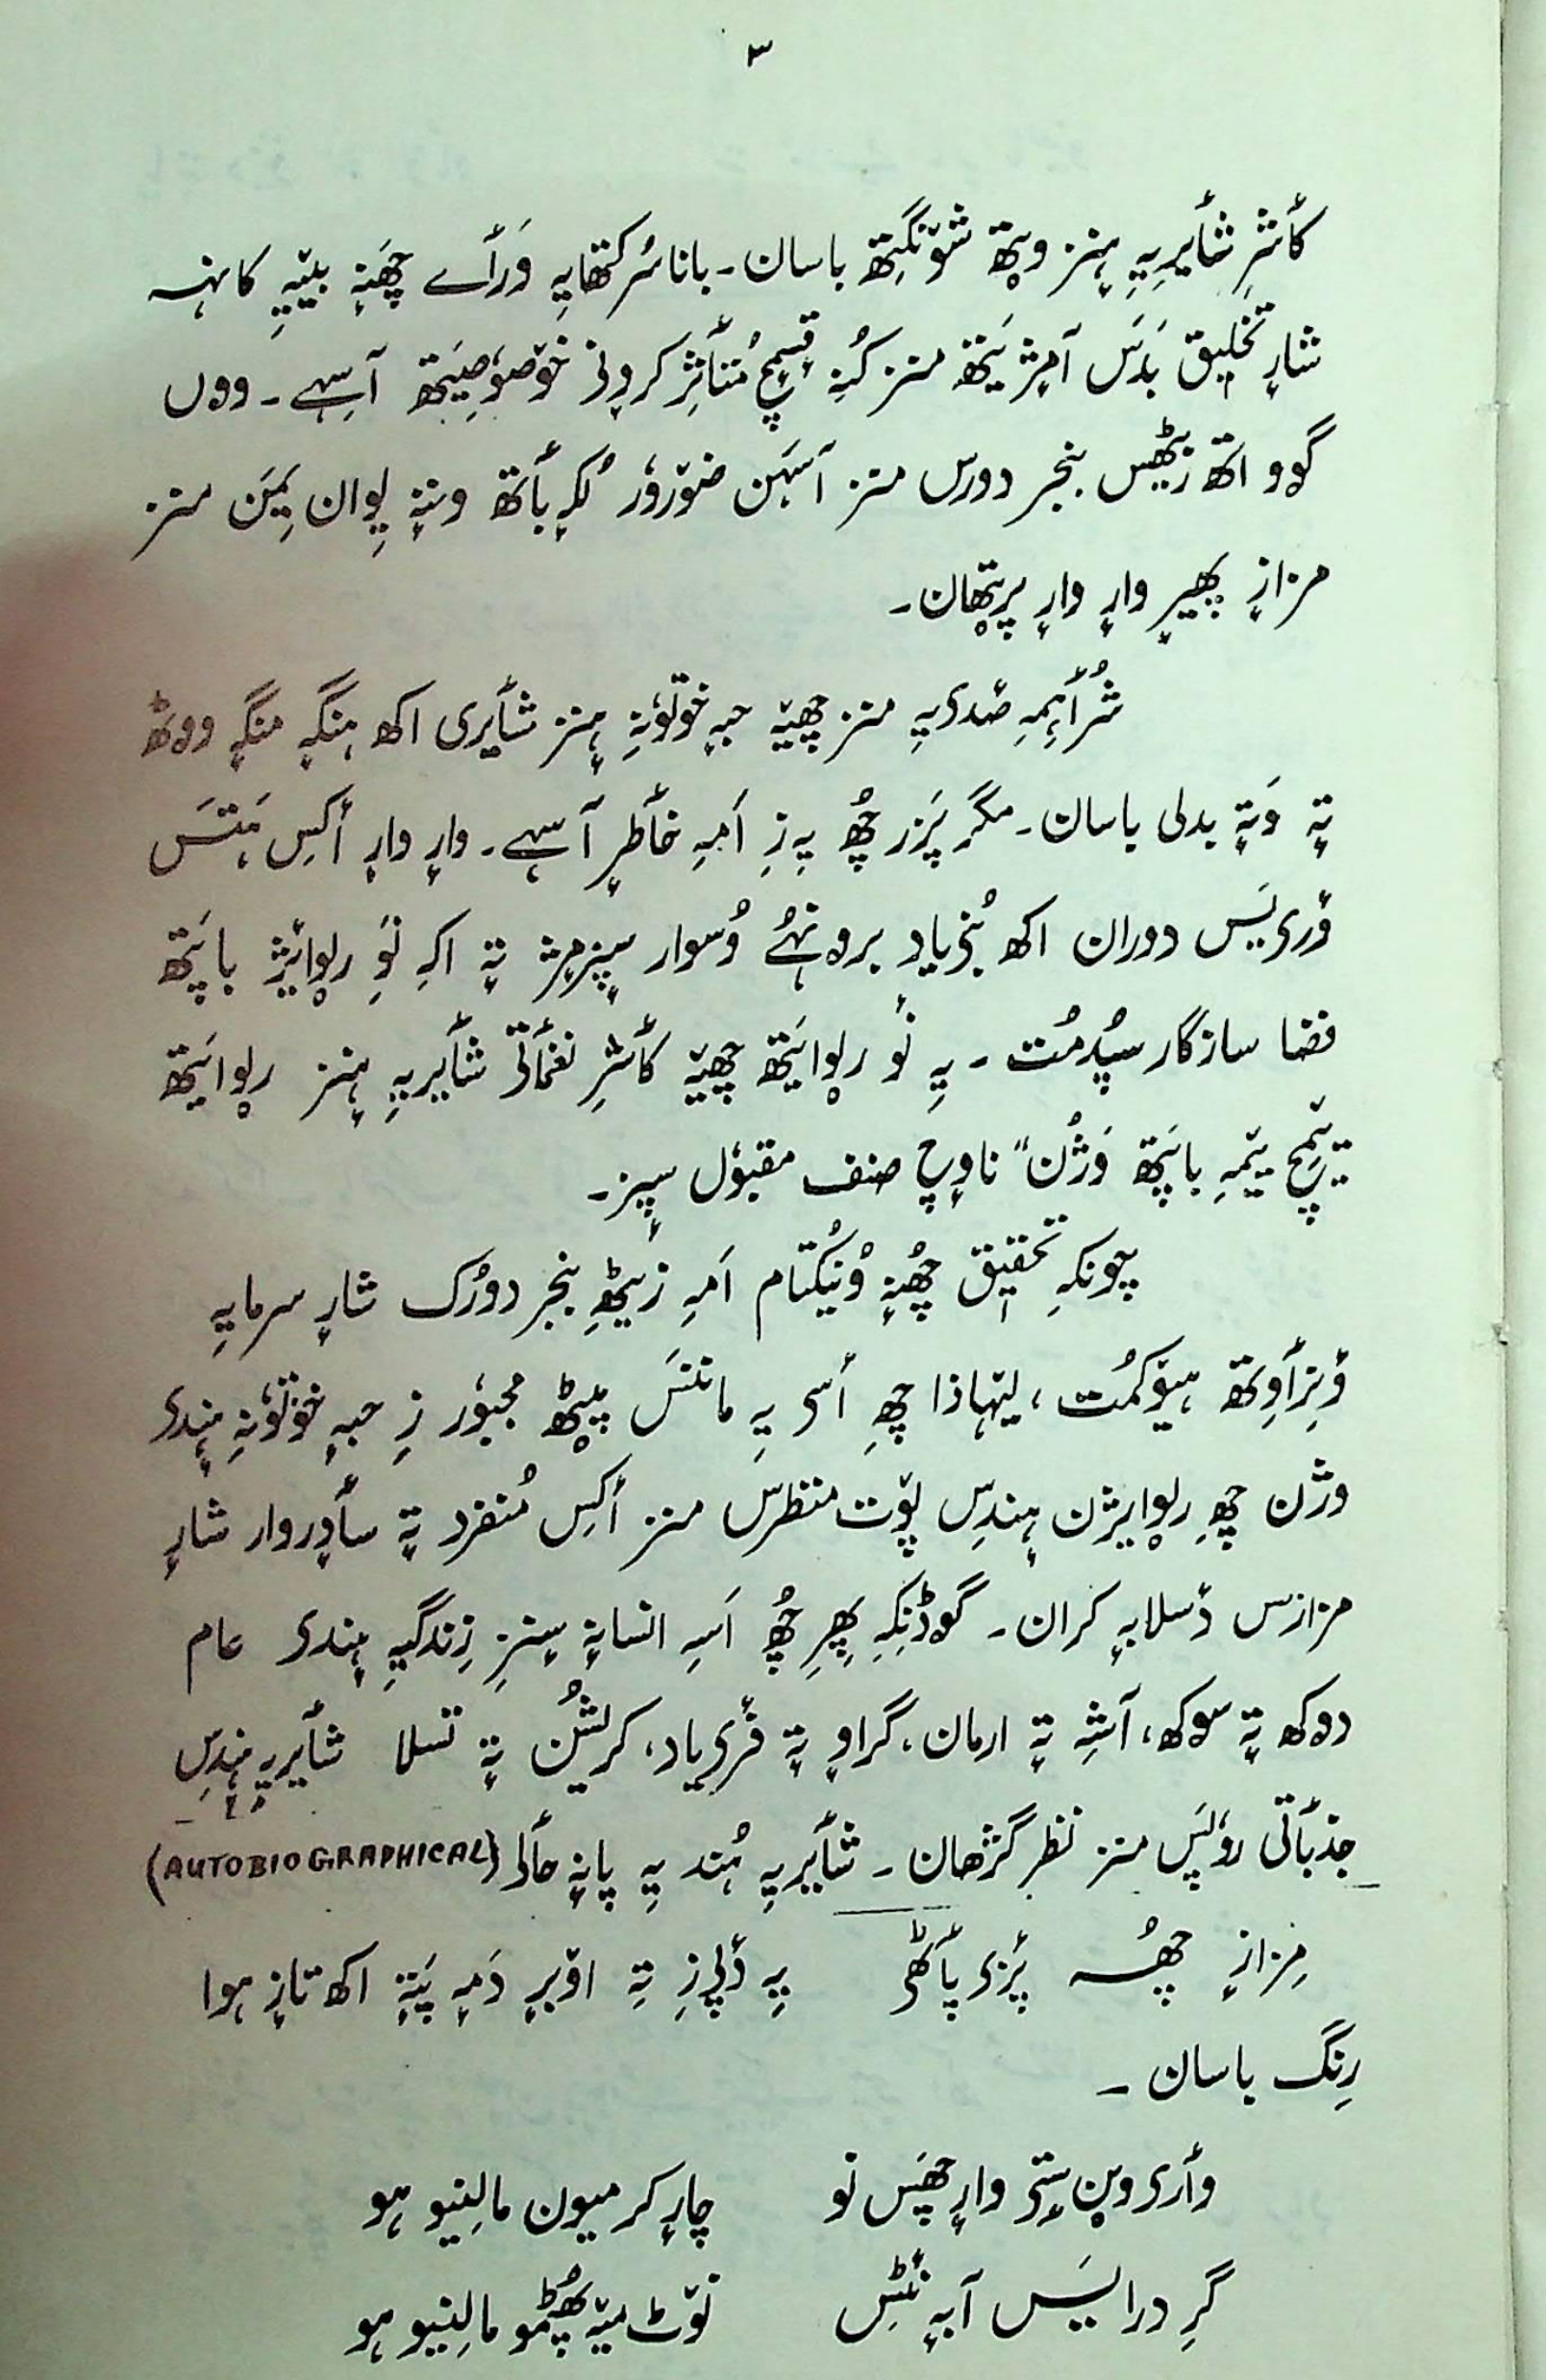 ۳
کأشرِ شأیرِیہِ ہٕنز ویتھ شۆنگِتھ باسان۔ باناسُر کتھایہِ وَرأے چھَنہٕ بیٚیہِ کانہہ
شارٕ تخلیق بَدَس آمٕژ یَتھ منز کُنہِ قٕسمٕچ مُتأثِر کرٕونۍ خۆصوٗصِیَتھ آسِہے۔ ووں
گوو اتھ زیٹھِس بنجر دورس منز آسہَن ضۆروٗر لُکہٕ بأتھ ونہٕ یِوان یِمَن منز
مزازٕ پھیرٕ وارٕ وارٕ پرٛتھان۔
شُرأہِمہِ صٔدی یہِ منز چھیٚہ حبہٕ خوتوٗنہِ ہٕنز شأیری اکھ ہنگہٕ منگہٕ ووٹھ
تہٕ وَتہٕ بدلی باسان۔ مگر پَزر چھُ یہِ زِ اَمہِ خأطرٕ آسہِے۔ وارٕ وارٕ أکِس ہَتَس
ؤری یَس دوران اکھ بُنیاد برونہہ وُسوار سپٕزمٕژ تہٕ اکہِ نَوِ رِوایژ باپَتھ
فضا سازگار سپُدمُت۔ یہِ نٔو رِوایَتھ چھیٚہ کأشرِ نغمأتی شأیریہِ ہٕنز رِوایَتھ
یٚتِمچ یٚیمہِ باپَتھ وَژُن" ناوٕچ صنف مقبوٗل سپٕز۔
چونکہِ تحقیٖق چھُنہٕ وُنیُکتام اَمہِ زیٹھِ بنجر دورُک شارٕ سرمایہِ
وٕنزأوِتھ ہیوٚکمُت، لیٚہاذا چھِ أسۍ یہِ ماننَس پیٚٹھ مجبوٗر زِ حبہٕ خوتوٗنہِ ہٕندۍ
وژن چھِ رِوایژن ہٕندِس پوٚت منظرس منز أکِس مُنفرد تہٕ سأدروار شارٕ
مزازس دٔسلابہٕ کران۔ گوڈنِکہِ پھِرِ چھُ اَسہِ انسانہٕ سٕنزِ زِندگیہِ ہٕندۍ عام
دوکھ تہٕ سوکھ، آشہِ تہٕ ارمان، گراوٕ تہٕ فٔریاد، کریشُن تہٕ تسلا شأیریہِ ہٕندِس
جذبأتی روٗپَس منز نظر گژھان۔ شأیریہِ ہُند یہِ پانہٕ حألۍ (AUTOBIOGRAPHICAL)
مِزازٕ چھُسہ پٔزۍ پأٹھۍ یہِ دٔلیٖزِ تہٕ اوٚبرٕ دَمہٕ پَتہٕ اکھ تازٕ ہوا
رِنگ باسان۔
وأرۍ وٮ۪ن سٕتۍ وارٕ چھَس نو چارٕ کر میون مالِنیو ہو
گرِ درایَس آبہٕ نٔٹِس نوٚٹ میٚہ پھُٹمو مالِنیو ہو